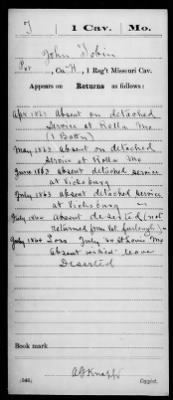 T 1 Cav. Mo.
John Tobin
Pvt, Co. H, 1 Reg't Missouri Cav.
Appears on Returns as follows:
Apr 1863 absent on detached
service at Rolla Mo
(1 Battn)
May 1863 absent on detached
service at Rolla Mo
June 1863 absent detached service
at Vicksburg
July 1863 absent detached service
at Vicksburg
July 1864 absent deserted (not
returned from Vet. furlough)
July 1864 Loss July St Louis Mo
absent without leave
Deserted
Book mark:
(546)
Copyist.